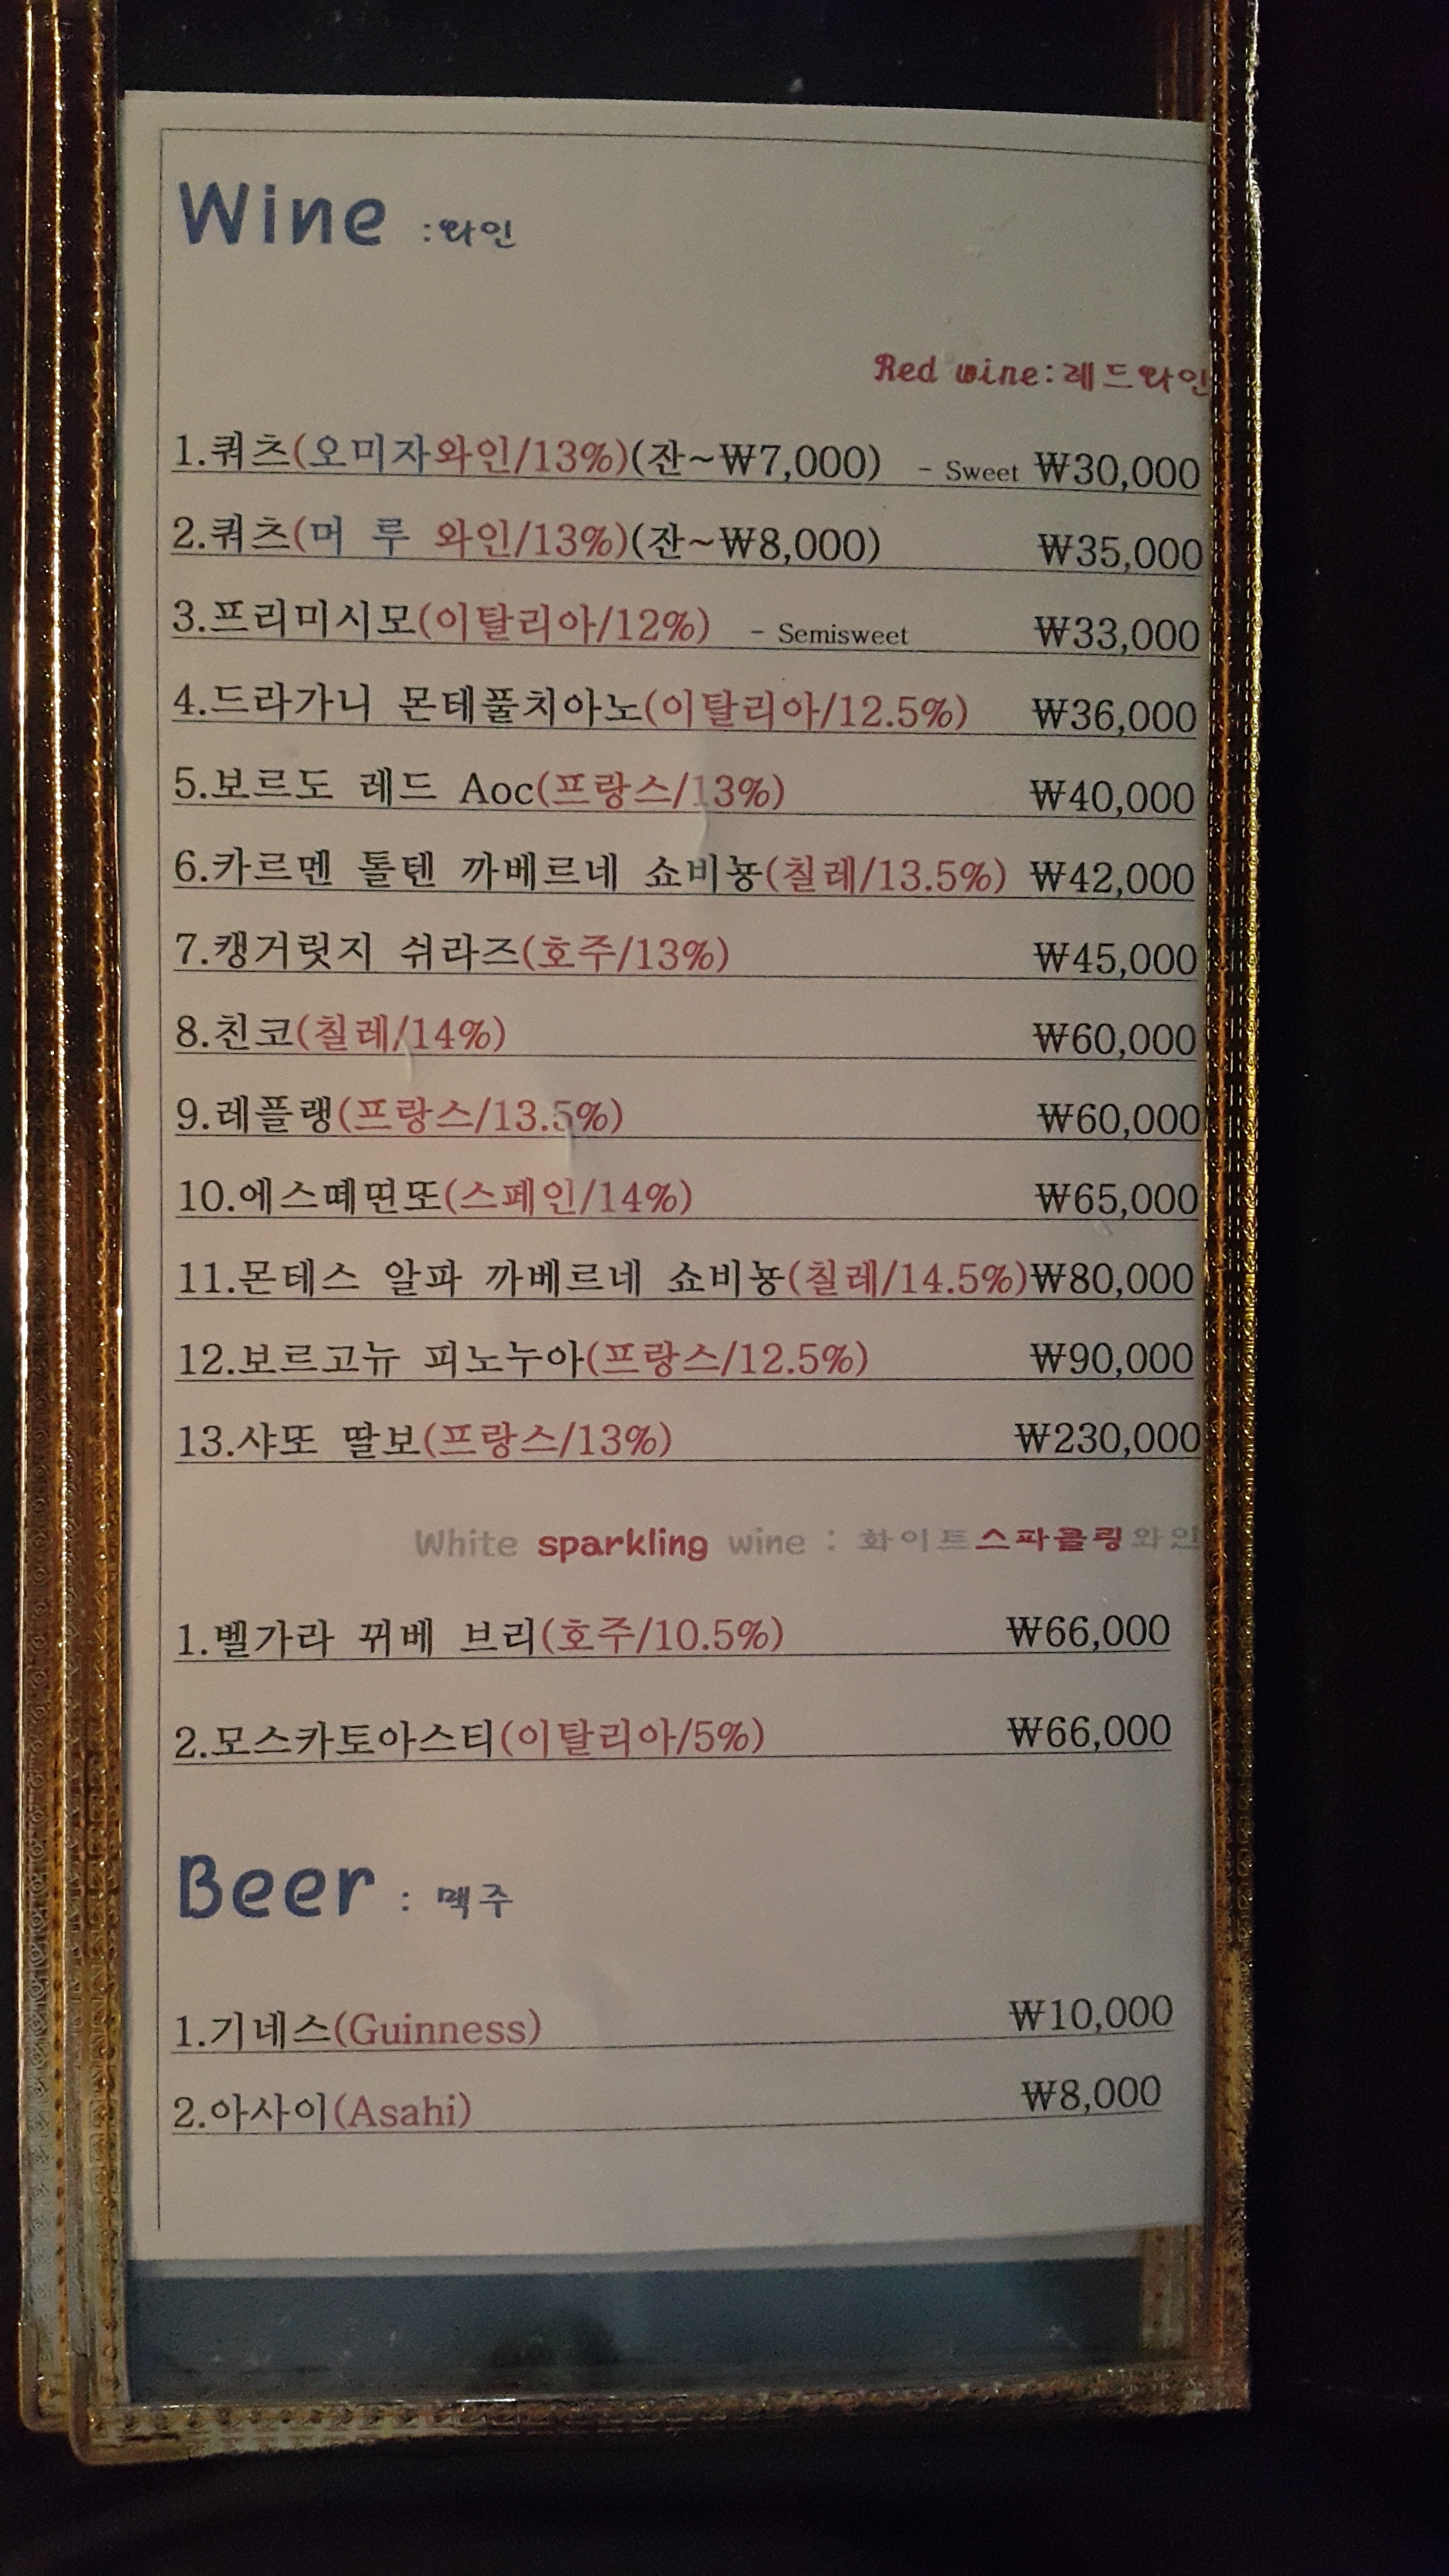 Wine :와인
Red wine:레드와인
1.쿼츠(오미자와인/13%)(잔~₩7,000) - Sweet ₩30,000
2.쿼츠(머 루 와인/13%)(잔~₩8,000) ₩35,000
3.프리미시모(이탈리아/12%) - Semisweet ₩33,000
4.드라가니 몬테풀치아노(이탈리아/12.5%) ₩36,000
5.보르도 레드 Aoc(프랑스/13%) ₩40,000
6.카르멘 톨텐 까베르네 쇼비뇽(칠레/13.5%) ₩42,000
7.캥거릿지 쉬라즈(호주/13%) ₩45,000
8.친코(칠레/14%) ₩60,000
9.레플랭(프랑스/13.5%) ₩60,000
10.에스떼떤또(스페인/14%) ₩65,000
11.몬테스 알파 까베르네 쇼비뇽(칠레/14.5%)₩80,000
12.보르고뉴 피노누아(프랑스/12.5%) ₩90,000
13.샤또 딸보(프랑스/13%) ₩230,000
White sparkling wine : 화이트스파클링와인
1.벨가라 뀌베 브리(호주/10.5%) ₩66,000
2.모스카토아스티(이탈리아/5%) ₩66,000
Beer : 맥주
1.기네스(Guinness) ₩10,000
2.아사이(Asahi) ₩8,000